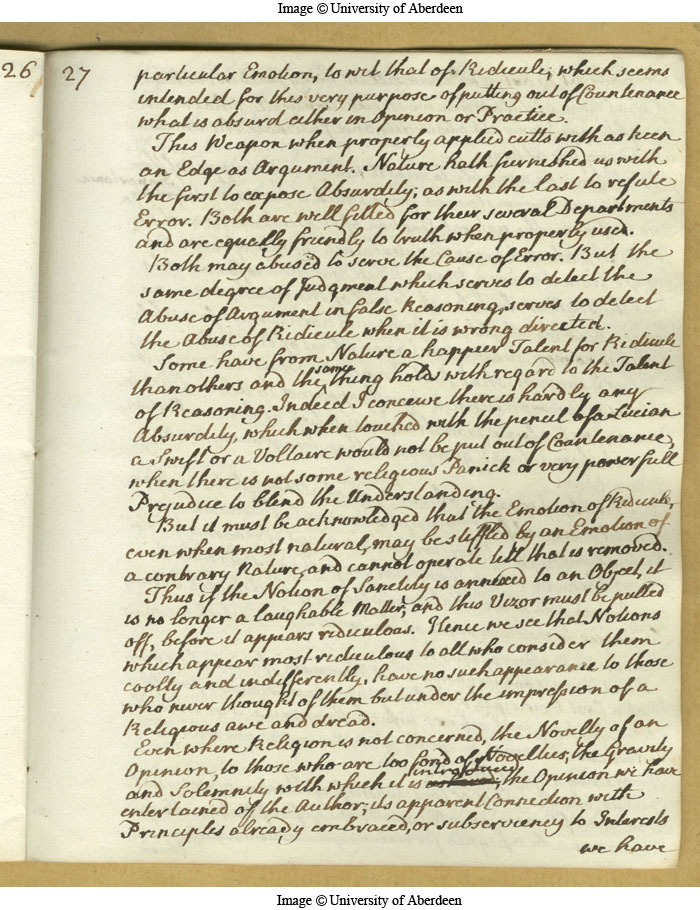 Image © University of Aberdeen
26
27
particular Emotion, to wit that of Ridicule, which seems
intended for this very purpose of putting out of Countenance
what is absurd either in Opinion or Practice.
This Weapon when properly applied cutts with as keen
an Edge as Argument. Nature hath furnished us with
the first to expose Absurdity; as with the last to refute
Error. Both are well fitted for their several Departments
and are equally friendly to truth when properly used.
Both may abused to serve the Cause of Error. But the
same degree of Judgment which serves to detect the
Abuse of Argument in false Reasoning, serves to detect
the Abuse of Ridicule when it is wrong directed.
Some have from Nature a happier Talent for Ridicule
than others and the same thing holds with regard to the Talent
of Reasoning. Indeed I conceive there is hardly any
Absurdity, which when touched with the pencil of a Lucian
a Swift or a Voltaire would not be put out of Countenance,
when there is not some religious Panick or very powerfull
Prejudice to blend the Understanding.
But it must be acknowledged that the Emotion of Ridicule,
even when most natural, may be stiffled by an Emotion of
a contrary Nature, and cannot operate till that is removed.
Thus if the Notion of Sanctity is annexed to an Object, it
is no longer a laughable Matter, and this Vizor must be pulled
off, before it appears ridiculous. Hence we see that Notions
which appear most ridiculous to all who consider them
coolly and indifferently, have no such appearance to those
who never thought of them but under the impression of a
Religious awe and dread.
Even where Religion is not concerned, the Novelty of an
Opinion, to those who are too fond of Novelties; the Gravity
and Solemnity with which it is introduced; the Opinion we have
entertained of the Author; its apparent Connection with
Principles already embraced, or subserviency to Interests
we have
Image © University of Aberdeen